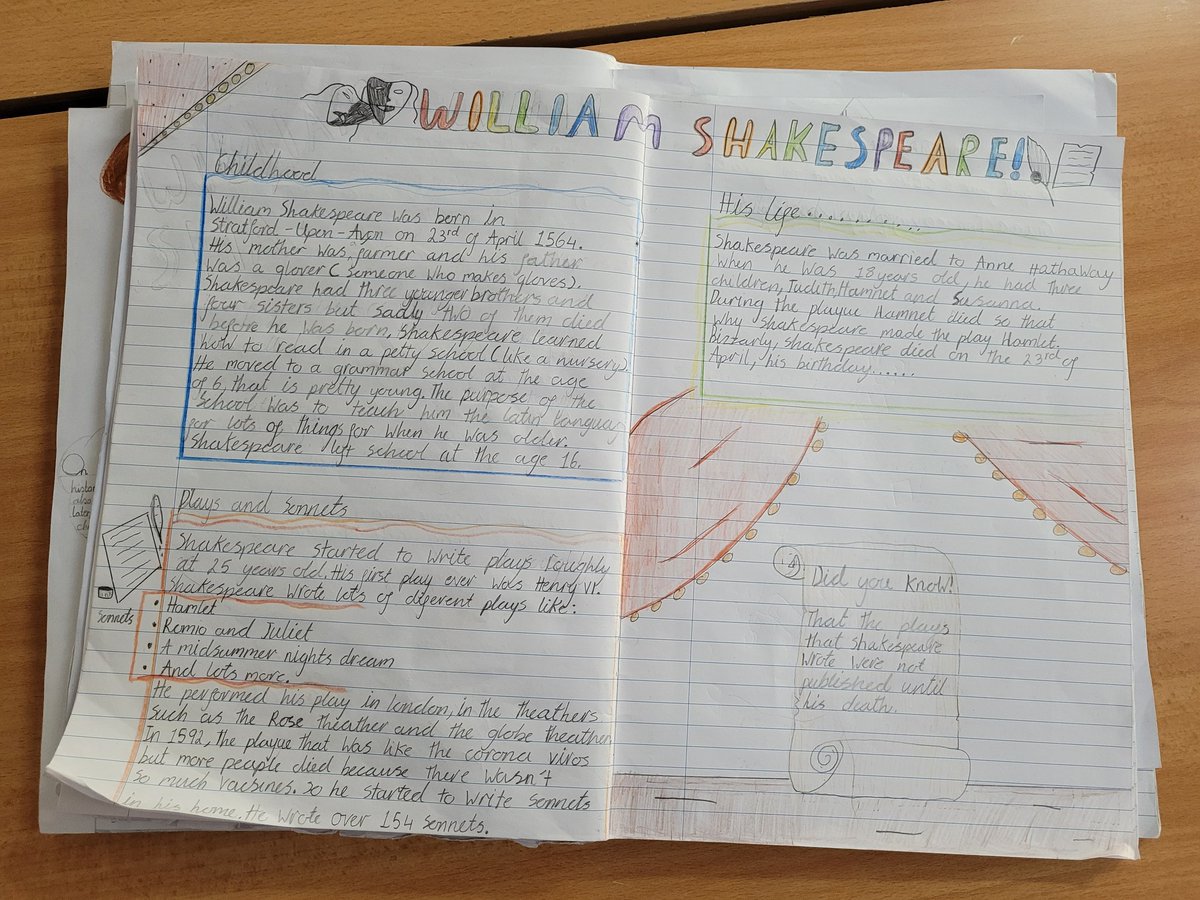 WILLIAM SHAKESPEARE!
Childhood
William Shakespeare was born in
Stratford-Upon-Avon on 23rd of April 1564.
His mother was farmer and his father
was a glover ( someone who makes gloves).
Shakespeare had three younger brothers and
four sisters but sadly two of them died
before he was born. Shakespeare learned
how to read in a petty school (like a nursery).
He moved to a grammar school at the age
of 6, that is pretty young. The purpose of the
school was to teach him the latin language
for lots of things for when he was older.
Shakespeare left school at the age 16.
Plays and sonnets
Shakespeare started to write plays roughly
at 25 years old. His first play ever was Henry VI.
Shakespeare wrote lots of different plays like:
sonnets
• Hamlet
• Remio and Juliet
• A midsummer nights dream
• And lots more.
He performed his play in london, in the theathers
such as the Rose theather and the globe theather
In 1592, the plague that was like the corona viros
but more people died because there wasn't
so much vacsines. So he started to write sonnets
in his home. He wrote over 154 sonnets.
His life..........
Shakespeare was married to Anne Hathaway
when he was 18 years old, he had three
children, Judith, Hamnet and Susanna.
During the plague Hamnet died so that
why shakespeare made the play Hamlet.
Bizzarly, shakespeare died on the 23rd of
April, his birthday......
Did you know!
That the plays
that shakespeare
wrote were not
published until
his death.
On